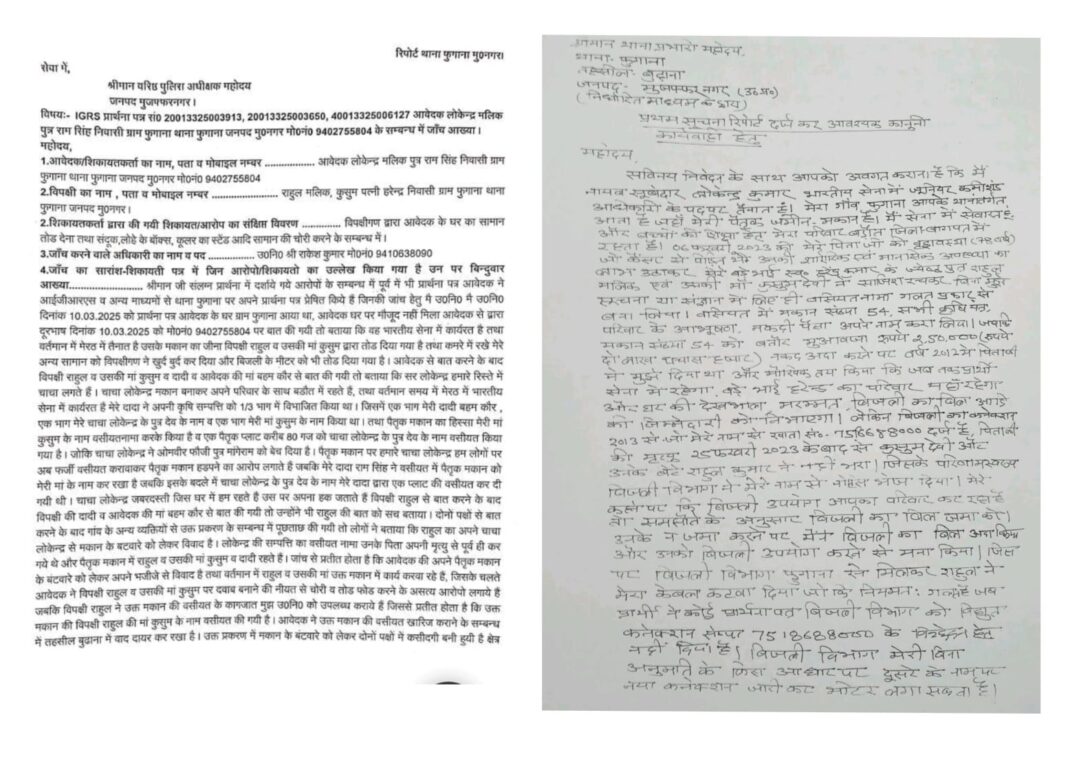 रिपोर्ट थाना फुगाना मु0नगर।
सेवा में,
श्रीमान वरिष्ठ पुलिरा अधीक्षक महोदय
जनपद मुजफ्फरनगर।
विषयः- IGRS प्रार्थना पत्र सं0 20013325003913, 20013325003650, 40013325006127 आवेदक लोकेन्द्र मलिक
पुत्र राम सिंह निवासी ग्राम फुगाना थाना फुगाना जनपद मु0नगर मो0नं0 9402755804 के सम्बन्ध में जाँच आख्या।
महोदय,
1.आवेदक/शिकायतकर्ता का नाम, पता व मोबाइल नम्बर .................. आवेदक लोकेन्द्र मलिक पुत्र राम सिंह निवासी ग्राम
फुगाना थाना फुगाना जनपद मु0नगर मो0नं0 9402755804
2.विपक्षी का नाम , पता व मोबाइल नम्बर ........................ राहुल मलिक, कुसुम पत्नी हरेन्द्र निवासी ग्राम फुगाना थाना
फुगाना जनपद मु0नगर।
2.शिकायतकर्ता द्वारा की गयी शिकायत/आरोप का संक्षिप्त विवरण .............. विपक्षीगण द्वारा आवेदक के घर का सामान
तोड देना तथा संदूक,लोहे के बॉक्स, कूलर का स्टेंड आदि सामान की चोरी करने के सम्बन्ध में।
3.जाँच करने वाले अधिकारी का नाम व पद .................. उ0नि0 श्री राकेश कुमार मो0नं0 9410638090
4.जाँच का सारांश-शिकायती पत्र में जिन आरोपो/शिकायतो का उल्लेख किया गया है उन पर बिन्दुवार
आख्या........................ श्रीमान जी संलग्न प्रार्थना में दर्शाये गये आरोपों के सम्बन्ध में पूर्व में भी प्रार्थना पत्र आवेदक ने
आईजीआरएस व अन्य माध्यमों से थाना फुगाना पर अपने प्रार्थना पत्र प्रेषित किये हैं जिनकी जांच हेतु मै उ0नि0 मै उ0नि0
दिनांक 10.03.2025 को प्रार्थना पत्र आवेदक के घर ग्राम फुगाना आया था, आवेदक घर पर मौजूद नही मिला आवेदक से द्वारा
दूरभाष दिनांक 10.03.2025 को मो0नं0 9402755804 पर बात की गयी तो बताया कि वह भारतीय सेना में कार्यरत है तथा
वर्तमान में मेरठ में तैनात है उसके मकान का जीना विपक्षी राहुल व उसकी मां कुसुम द्वारा तोड दिया गया है तथा कमरे में रखे मेरे
अन्य सामान को विपक्षीगण ने खुर्द बुर्द कर दिया और बिजली के मीटर को भी तोड दिया गया है। आवेदक से बात करने के बाद
विपक्षी राहुल व उसकी मां कुसुम व दादी व आवेदक की मां बहम कौर से बात की गयी तो बताया कि सर लोकेन्द्र हमारे रिस्ते में
चाचा लगते हैं। चाचा लोकेन्द्र मकान बनाकर अपने परिवार के साथ बडौत में रहते हैं, तथा वर्तमान समय में मेरठ में भारतीय
सेना में कार्यरत है मेरे दादा ने अपनी कृषि सम्पत्ति को 1/3 भाग में विभाजित किया था। जिसमें एक भाग मेरी दादी बहम कौर ,
एक भाग मेरे चाचा लोकेन्द्र के पुत्र देव के नाम व एक भाग मेरी मां कुसुम के नाम किया था। तथा पैतृक मकान का हिस्सा मेरी मां
कुसुम के नाम वसीयतनामा करके किया है व एक पैतृक प्लाट करीब 80 गज को चाचा लोकेन्द्र के पुत्र देव के नाम वसीयत किया
गया है। जोकि चाचा लोकेन्द्र ने ओमवीर फौजी पुत्र मांगेराम को बेच दिया है। पैतृक मकान पर हमारे चाचा लोकेन्द्र हम लोगों पर
अब फर्जी वसीयत करावाकर पैतृक मकान हडपने का आरोप लगाते है जबकि मेरे दादा राम सिंह ने वसीयत में पैतृक मकान को
मेरी मां के नाम कर रखा है जबकि इसके बदले में चाचा लोकेन्द्र के पुत्र देव के नाम मेरे दादा द्वारा एक प्लाट की वसीयत कर दी
गयी थी। चाचा लोकेन्द्र जबरदस्ती जिस घर में हम रहते है उस पर अपना हक जताते है विपक्षी राहुल से बात करने के बाद
विपक्षी की दादी व आवेदक की मां बहम कौर से बात की गयी तो उन्होंने भी राहुल की बात को सच बताया। दोनो पक्षो से बात
करने के बाद गांव के अन्य व्यक्तियों से उक्त प्रकरण के सम्बन्ध में पूछताछ की गयी तो लोगो ने बताया कि राहुल का अपने चाचा
लोकेन्द्र से मकान के बटवारे को लेकर विवाद है। लोकेन्द्र की सम्पत्ति का वसीयत नामा उनके पिता अपनी मृत्यु से पूर्व ही कर
गये थे और पैतृक मकान में राहुल व उसकी मां कुसुम व दादी रहते हैं। जांच से प्रतीत होता है कि आवेदक की अपने पैतृक मकान
के बंटवारे को लेकर अपने भजीजे से विवाद है तथा वर्तमान में राहुल व उसकी मां उक्त मकान में कार्य करवा रहे है, जिसके चलते
आवेदक ने विपक्षी राहुल व उसकी मां कुसुम पर दबाब बनाने की नीयत से चोरी व तोड फोड करने के असत्य आरोपो लगाये है
जबकि विपक्षी राहुल ने उक्त मकान की वसीयत के कागजात मुझ उ0नि0 को उपलब्ध कराये है जिससे प्रतीत होता है कि उक्त
मकान की विपक्षी राहुल की मां कुसुम के नाम वसीयत की गयी है। आवेदक ने उक्त मकान की वसीयत खारिज कराने के सम्बन्ध
में तहसील बुढाना में वाद दायर कर रखा है। उक्त प्रकरण में मकान के बंटवारे को लेकर दोनों पक्षों में कसीदगी बनी हुयी है क्षेत्र
श्रीमान थाना प्रभारी महोदय,
थाना- फुगाना
तहसील- बुढ़ाना
जनपद- मुजफ्फर नगर (उ0प्र0)
(निर्धारित माध्यम के द्वारा)
प्रथम सूचना रिपोर्ट दर्ज कर आवश्यक कानूनी
कार्यवाही हेतु
महोदय,
सविनय निवेदन के साथ आपको अवगत कराना है कि मैं
नायब सूबेदार लोकेन्द्र कुमार भारतीय सेना में जूनियर कमीशंड
अधिकारी के पद पर तैनात हूं। मेरा गाँव फुगाना आपके थानांतर्गत
आता है जहाँ मेरी पैतृक जमीन, मकान है। मैं सेना में सेवारत हूं
और बच्चों की शिक्षा हेतु मेरा परिवार बड़ौत जिला बागपत में
रहता है। 06 फरवरी 2023 को मेरे पिता जी की वृद्धावस्था (78 वर्ष)
जो कैंसर से पीड़ित थे उनकी शारीरिक एवं मानसिक अवस्था का
लाभ उठाकर मेरे बड़े भाई स्व० हरेन्द्र कुमार के ज्येष्ठ पुत्र राहुल
मलिक एवं उसकी माँ कुसुम देवी ने साजिश रचकर बिना मुझे
सूचना या संज्ञान में लिए ही वसियतनामा गलत प्रकार से
बना लिया। वसियत में मकान संख्या 54, सभी कृषि यंत्र,
परिवार के आभूषण, नकदी पैसा अपने नाम करा लिया। जबकि
मकान संख्या 54 को बतौर मुआवजा रुपये 2,50,000 (रुपये
दो लाख पचास हजार) नकद अदा करने पर वर्ष 2012 में पिताजी
ने मुझे दिया था और मौखिक तय किया कि जब तक प्रार्थी
सेना में रहेगा बड़े भाई हरेन्द्र का परिवार यहाँ रहेगा
और घर की देखभाल, मरम्मत, बिजली का बिल आदि
की जिम्मेदारी को निभाएगा। लेकिन बिजली का कनेक्शन
2013 से जो मेरे नाम से खाता सं०- 7518688000 दर्ज है, पिताजी
की मृत्यु 25 फरवरी 2023 के बाद से कुसुम देवी और
उनके बेटे राहुल कुमार ने नहीं भरा। जिसके परिणामस्वरूप
बिजली विभाग ने मेरे नाम से नोटिस भेज दिया। मेरे
कहने पर कि बिजली उपयोग आपका परिवार कर रहा है
तो समझौते के अनुसार बिजली का बिल जमा करो।
उनके न जमा करने पर मैंने बिजली का बिल अदा किया
और उनको बिजली उपयोग करने से मना किया। जिस
पर बिजली विभाग फुगाना से मिलकर राहुल ने
मेरा केबल कटवा दिया जो कि नियमतः गलत है जब
प्रार्थी ने कोई प्रार्थना पत्र बिजली विभाग को विद्युत
कनेक्शन संख्या 7518688000 के विच्छेदन हेतु
नहीं दिया है। बिजली विभाग मेरी बिना
अनुमति के किस आधार पर दूसरे के नाम पर
नया कनेक्शन जारी कर मीटर लगा सकता है।